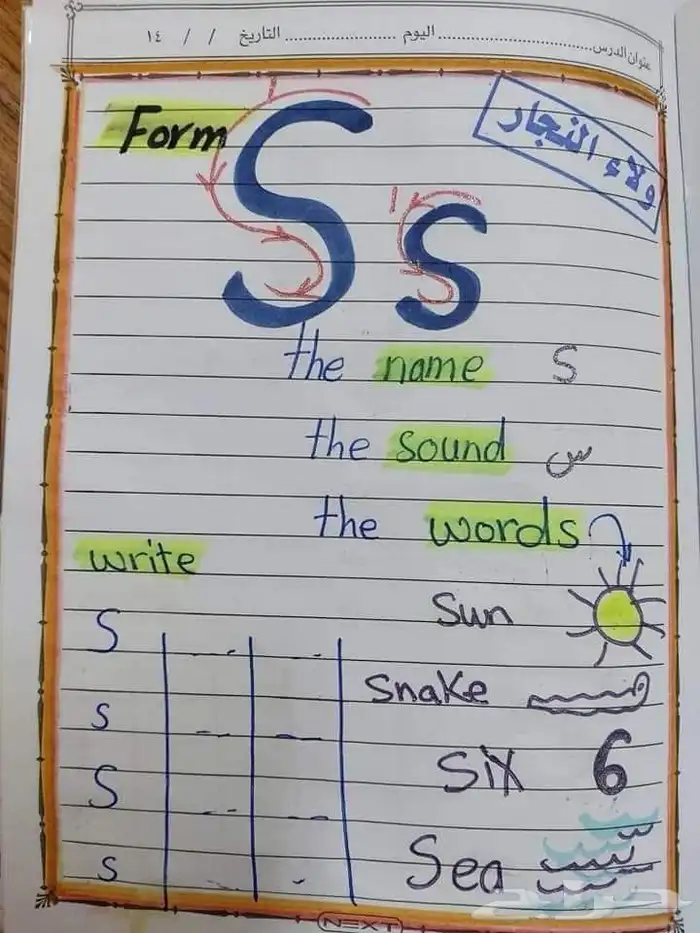 عنوان الدرس.......................................... اليوم ........................ التاريخ / / ١٤
Form S s
ولاء النجار
1 1
the name S
the sound س
the words
write
Sun
S
Snake
s
Six 6
S
Sea
s
NEXT
حراج